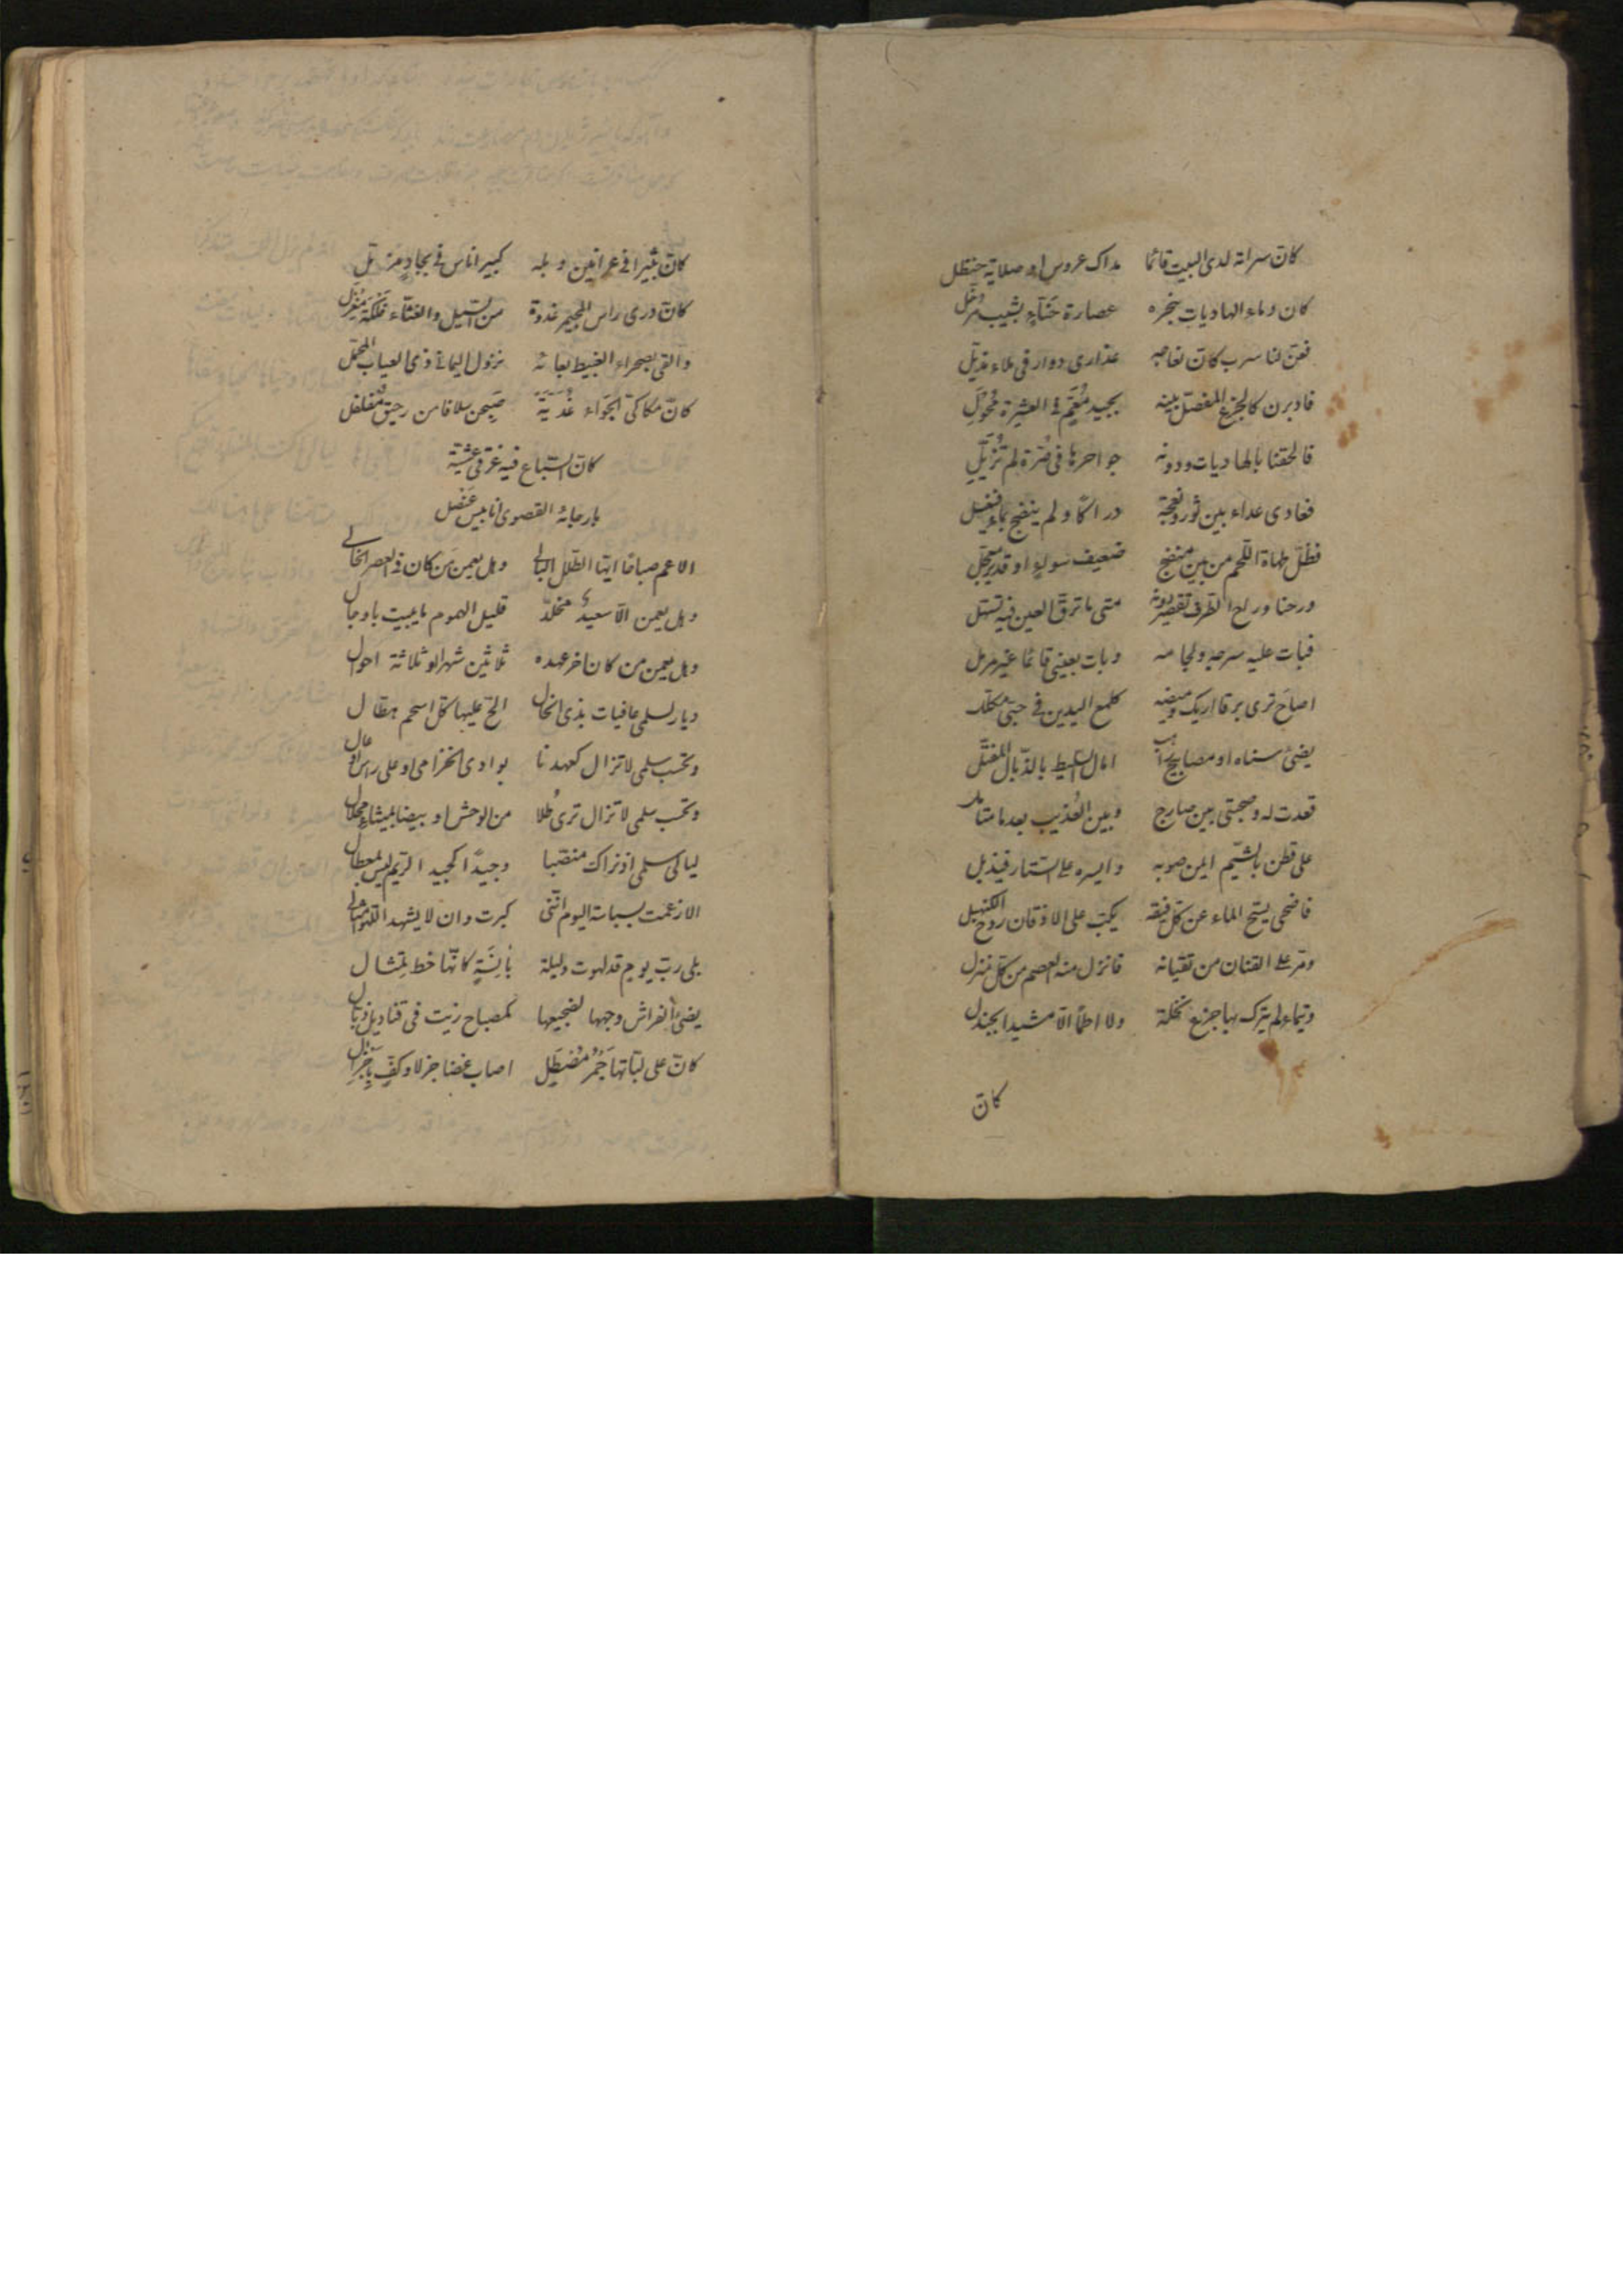 كان سراته لدى البيت قائما مداك عروس او صلاية حنظل
كان دماء الهاديات بنحره عصارة حنّاءٍ بشيب مرجّل
فعنّ لنا سرب كانّ نعاجه عذارى دوار فى ملاء مذيّل
فادبرن كالجزع المفصّل بينه بجيد مُعَمٍّ فى العشيرة مُخْوَلِ
فالحقنا بالهاديات ودونه جواحرها فى صَرّة لم تُزَيَّلِ
فعادى عداء بين ثور ونعجة دراكًا ولم ينضح بماء فيغسل
فظلّ طهاة اللّحم من بين منضج ضعيف شواءٍ او قدير معجّل
ورحنا وراح الطرف يقصر دونه متى ما ترقّ العين فيه تسهل
فبات عليه سرجه ولجامه وبات بعينى قائما غير مرسل
اصاح ترى برقا اريك وميضه كلمع اليدين فى حبىّ مكلّل
يضئ سناه او مصابيح راهب امال السّليط بالذّبال المفتّل
قعدت له وصحبتى بين ضارج وبين العُذيب بعد ما متامل
على قطن بالشّيم ايمن صوبه وايسره على السّتار فيذبل
فاضحى يسحّ الماء عن كل فيقة يكبّ على الاذقان دوح الكنهبل
ومرّ على القنان من نفيانه فانزل منه العصم من كلّ منزل
وتيماء لم يترك بها جزع نخلة ولا اطمًا الّا مشيدا بجندل
كانّ
كانّ ثبيرا فى عرانين وبله كبير اناس فى بجادٍ مزمّل
كانّ ذرى راس المجيمر غدوة من السّيل والغثّاء فلكة مِغْزَل
والقى بصحراء الغبيط بعاعه نزول اليمانى ذى العياب المحمّل
كانّ مكاكىّ الجَواء غُديّة صُبحن سلافا من رحيق مفلفل
كانّ السّباع فيه غرقى عشيّة
بارجائه القصوى انابيش عنصل
الا عم صباحًا ايّها الطّلل البالى وهل يعمن من كان فى العصر الخالى
وهل يعمن الّا سعيدٌ مخلّد قليل الهموم ما يبيت باوجال
وهل يعمن من كان اخر عهده ثلاثين شهرا او ثلاثة احوال
ديار لسلمى عافيات بذى الخال الحّ عليها كلّ اسحم هطّال
وتحسب سلمى لا تزال كعهدنا بوادى الخزامى او على راس اوعال
وتحسب سلمى لا تزال ترى طلا من الوحش او بيضا بميثاء محلال
ليالى سلمى اذ تراك منصّبا وجيدًا كجيد الرّيم ليس بمعطال
الا زعمت بسباسة اليوم انّنى كبرت وان لا يشهد اللّهو امثالى
بلى ربّ يوم قد لهوت وليلة بآنسةٍ كانّها خط تمثال
يضئ الفراش وجهها لضجيعها كمصباح زيت فى قناديل ذبّال
كانّ على لبّاتها جَمْرَ مُصْطَلٍ اصاب غضا جزلا وكفّ باجزال